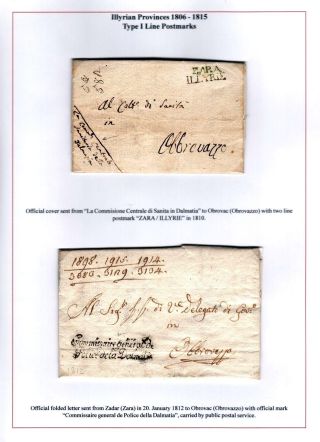 Illyrian Provinces 1806 - 1815
Type I Line Postmarks
ZARA
ILLYRIE
Al di Sanità
in
Obbrovazzo
Official cover sent from "La Commisione Centrale di Sanita in Dalmatia" to Obrovac (Obrovazzo) with two line
postmark "ZARA / ILLYRIE" in 1810.
1898. 1915. 1914.
Al Sig.
in
Commissaire général de
Police de la Dalmatie
Obbrovazzo
1812
Official folded letter sent from Zadar (Zara) in 20. January 1812 to Obrovac (Obrovazzo) with official mark
"Commissaire general de Police della Dalmatie", carried by public postal service.